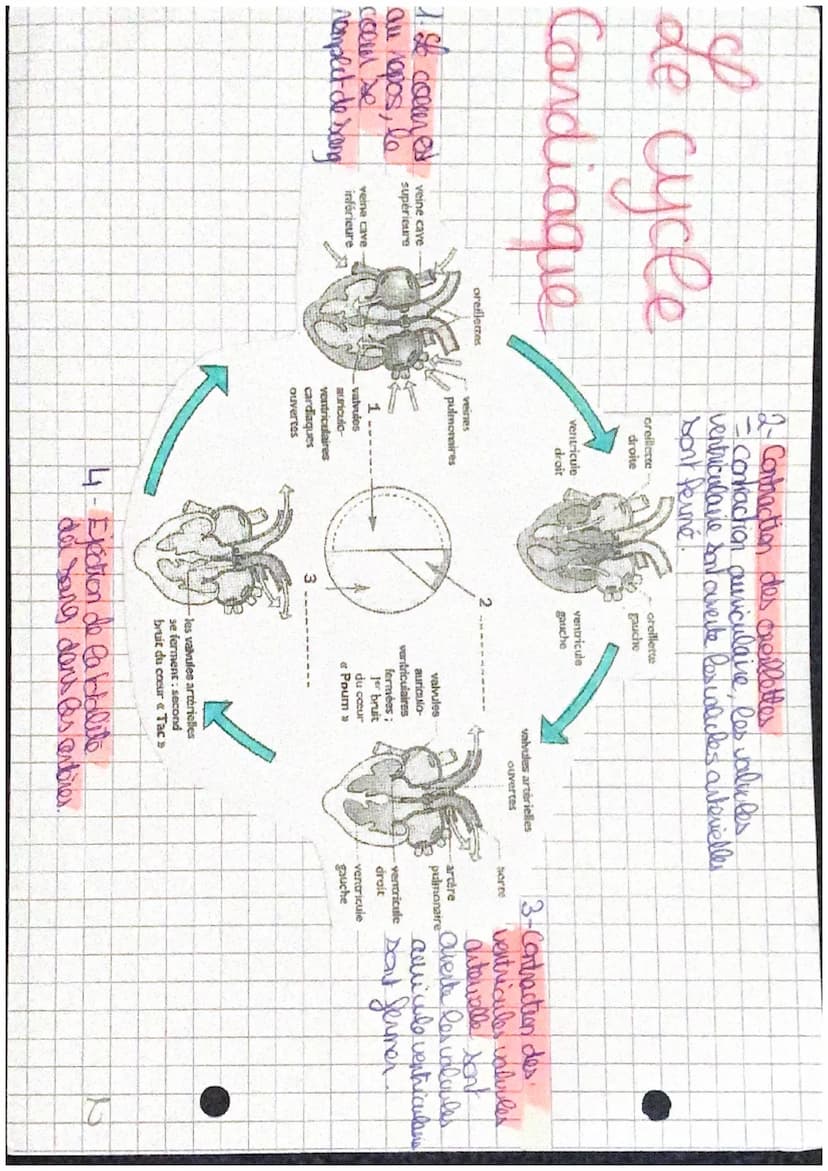 Le cycle
Cardiaque
1. Le coeur est
au repos, le
coeur se
rempli de sang
2- Contraction des oreillettes
- Contraction auriculaire, les valvules
ventriculaire sont ouverte les valvules arterielles
sont fermé.
veine cave
supérieure
veine cave
inférieure
oreillettes
veines
pulmonaires
valvules
auriculo-
ventriculaires
cardiaques
ouvertes
oreillette
droite
ventricule
droit
oreillette
gauche
ventricule
gauche
1
2
3
valvules artérielles
ouvertes
valvules
auriculo-
ventriculaires
fermées ;
1er bruit
du cœur
« Poum »
aorte
artère
pulmonaire
ventricule
droit
ventricule
gauche
3- Contraction des
ventricules valvules
arterielle sont
ouverte les valvules
auriculo ventriculaire
sont fermer.
les valvules artérielles
se ferment : second
bruit du cœur « Tac »
4- Ejection de la totalité
du sang dans les artères.